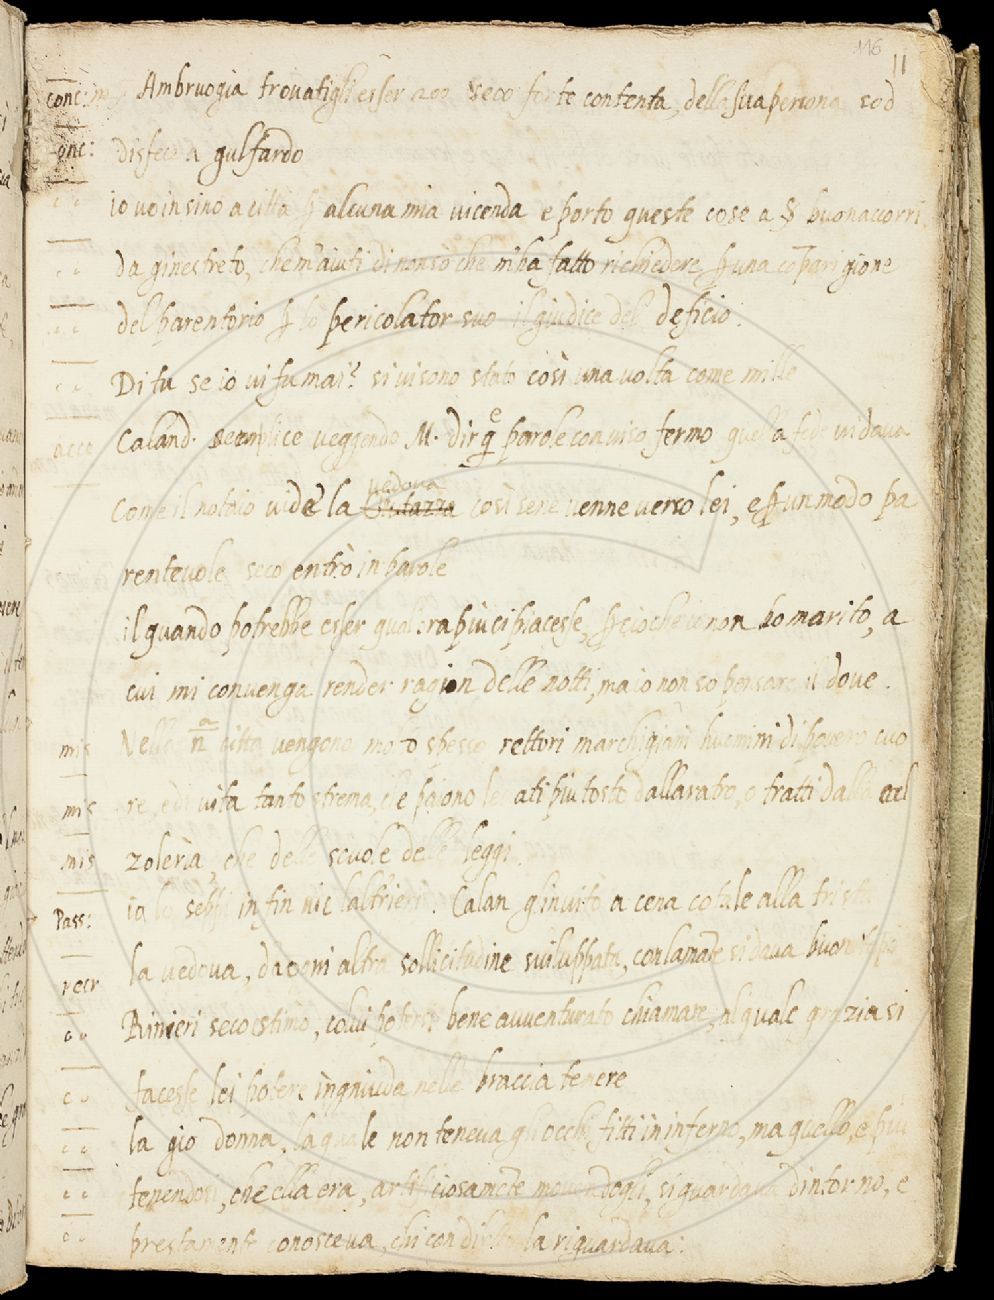 116
11
conc: Ambruogia trovatigli esser 200 seco forte contenta, della sua persona sod
onc: disfece a gulfardo
io vo insino a citta ꝑ alcuna mia vicenda e porto queste cose a buonaccorri
da ginestreto, che m'aiuti di non so che m'ha fatto richiedere ꝑ una cõparigione
del parentorio ꝑ lo pericolator suo il giudice del deficio.
Di tu se io vi fu mai? si vi sono stato così una volta come mille
Caland. semplice veggendo M. dir q̃e parole con viso fermo quella fede vi dava
vedova
come il notaio vide la così se ne venne verso lei, e ꝑ un modo pa
rentevole seco entrò in parole
il quando potrebbe esser qual:ra più ci piacesse, ꝑcioche io non ho marito, a
cui mi convenga render ragion delle notti, ma io non so pensare il dove.
mis Nella nª citta vengono molto spesso rettori marchigiani huomini di povero cuo
mis re, e di vita tanto strema, che paiono levati piu tosto dallaratro, o tratti dalla cal
mis zoleria, che delle scuole delle leggi.
Pass: io lo seppi in fin nic laltrieri. Calan ginvitò a cena cotale alla trista
la vedova, da ogni altra sollicitudine sviluppata, con lamãte si dava buon
recr Rinieri seco estimò, colui potersi bene avventurato chiamare, al quale grazia si
facesse lei potere ingniuda nelle braccia tenere
la gio donna, la quale non teneva gli occhi fitti in inferno, ma quello, e più
tenendosi, che ella era, artificiosamẽte movendogli, si guardava dintorno, e
prestamente conosceva, chi con diletto la riguardava: